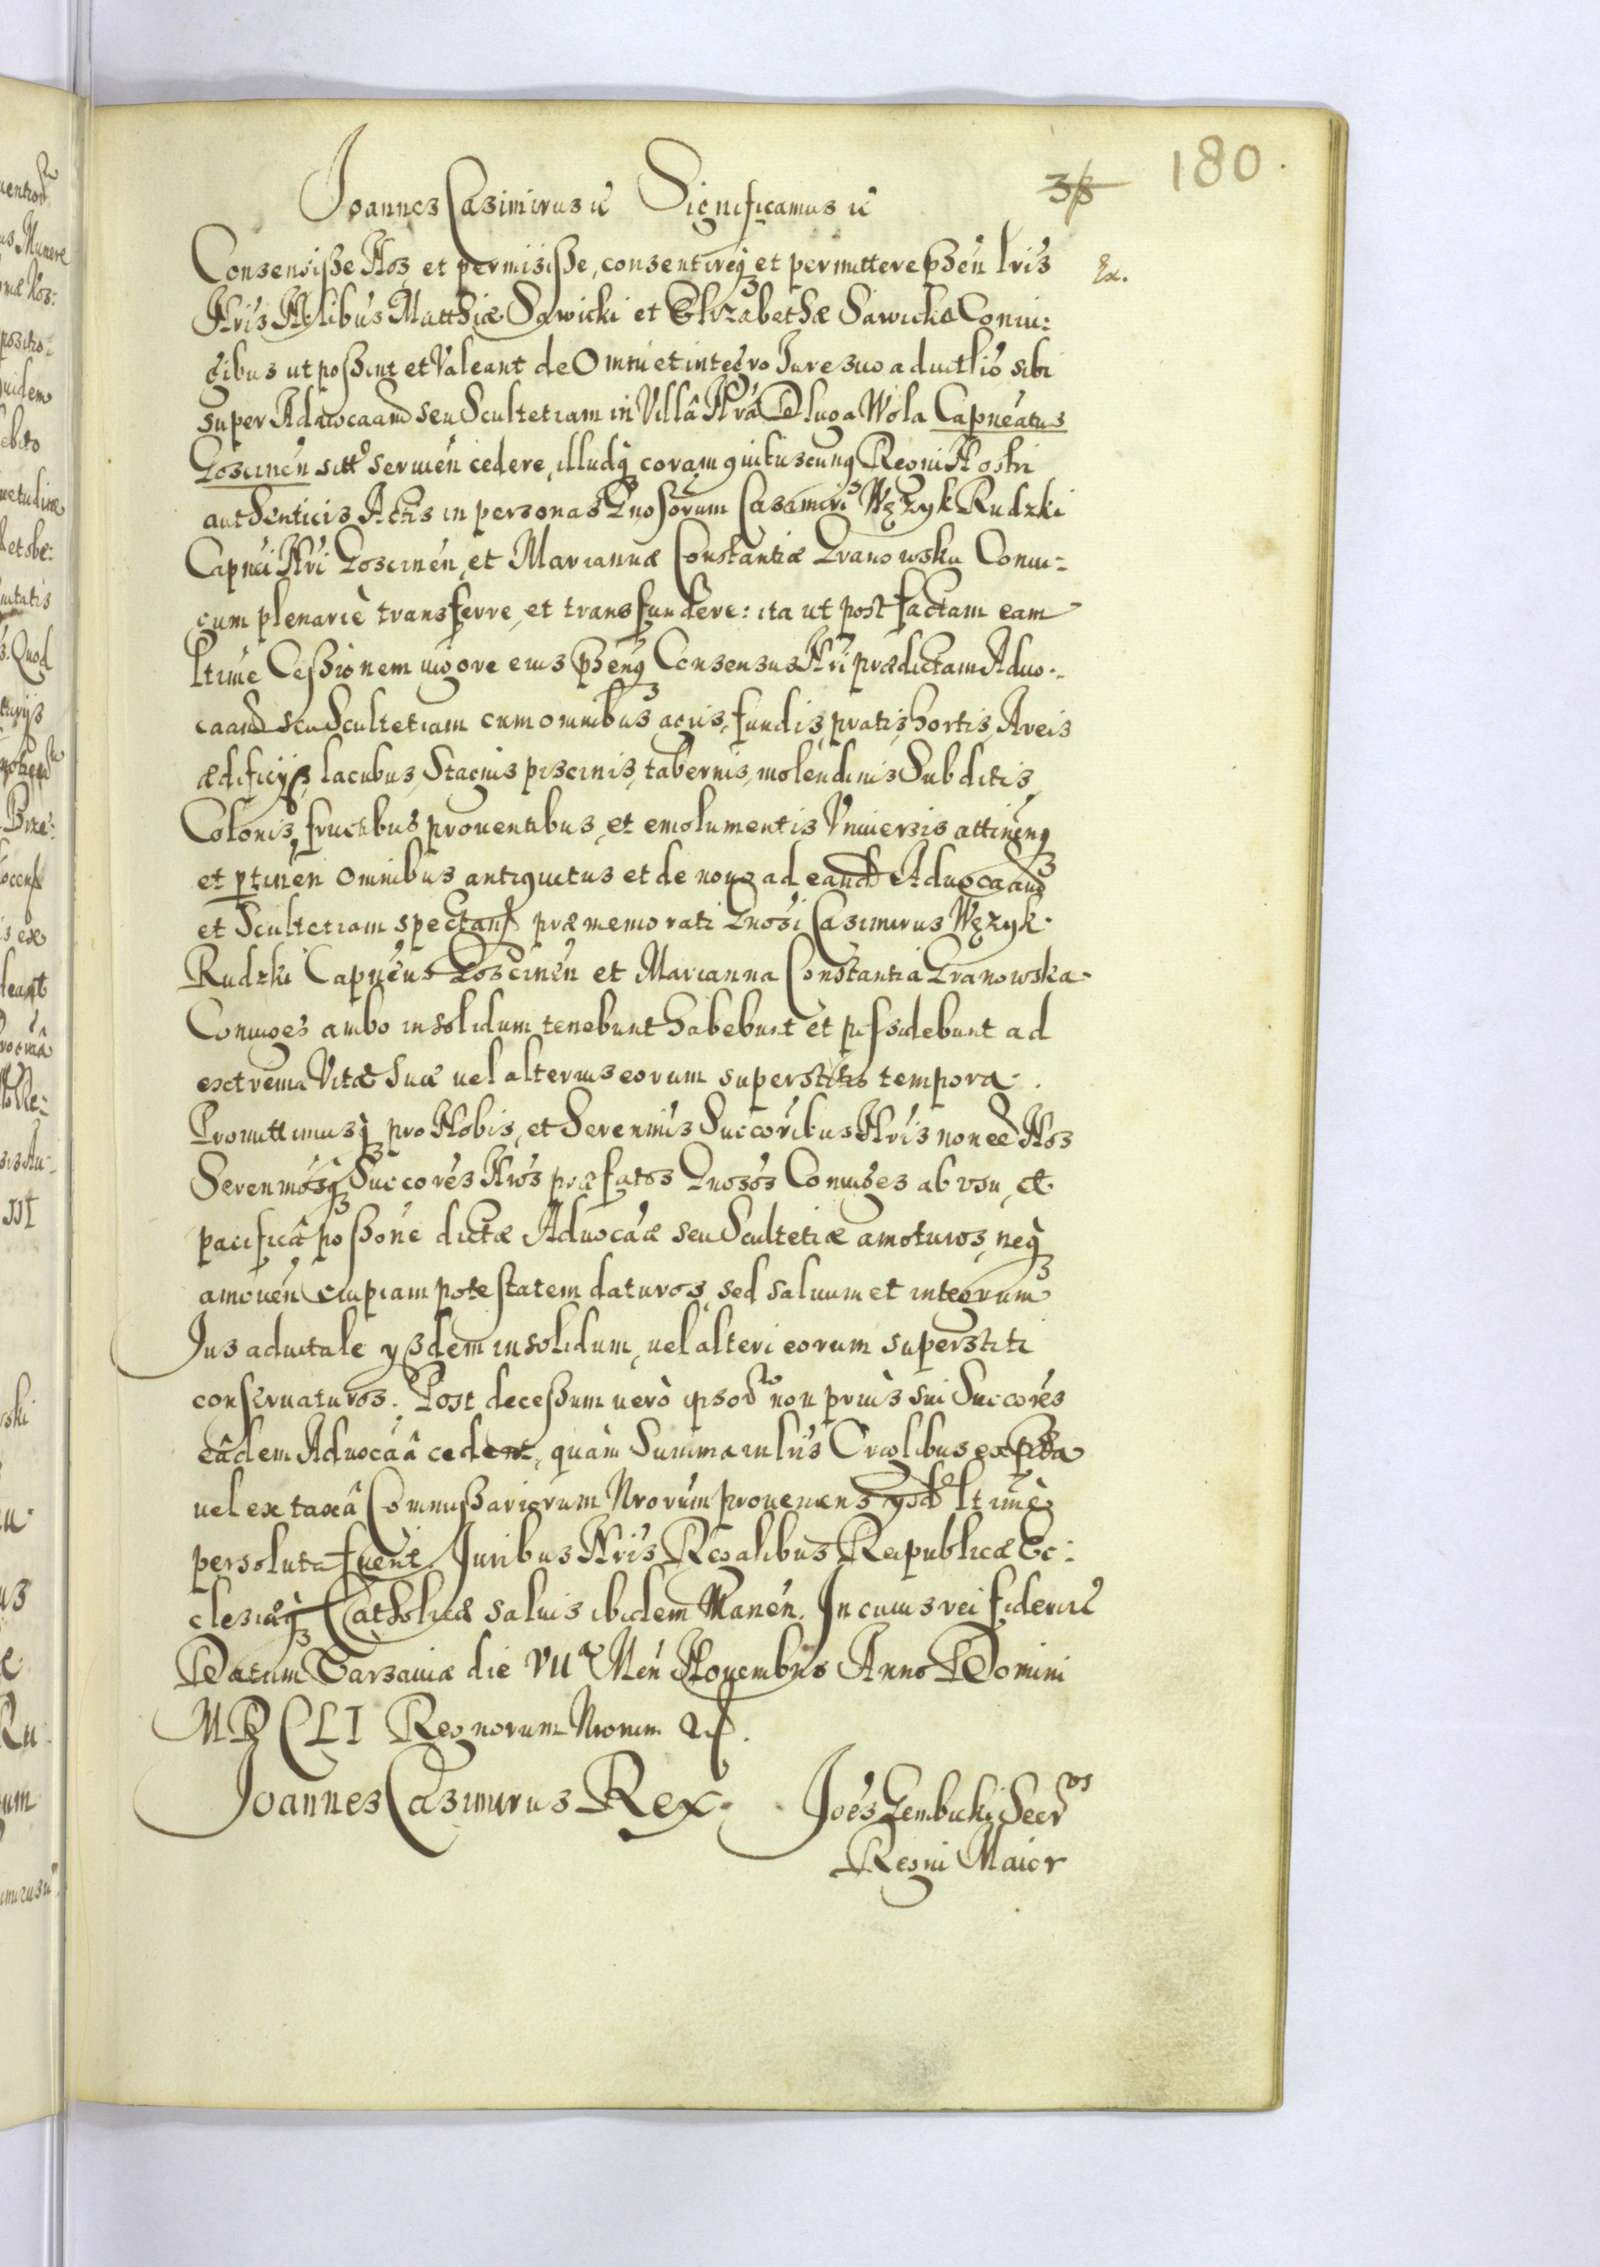 180.
38
Joannes Casimirus &c Significamus &c
Ex.
Consensisse Nos et permisisse, consentireq et permittere pñsen lris
Nris Nlibus Matthiæ Sawicki et Elizabethæ Sawicka Coniu:
gibus ut possint et Valeant de Omni et integro Jure suo aduitlio sibi
super Aduocaam seu Scultetiam in Villâ Nrâ Dluga Wola Capneatus
Goscinen sitt° seruien cedere, illudq coram quibuscunq Regni Nostri
authenticis Actis in personas Gnosorum Casimiri Wężyk Rudzki
Capnei Nri Goscinen, et Mariannæ Constantiæ Granowska Coniu:
gum plenariè transferre, et transfundere: ita ut post factam eam
ltime Cessionem uigore eius pñsenq Consensus Nri prædictam Aduo:
caam seu Scultetiam cum omnibus agris, fundis, pratis, hortis, Areis
ædificijs, lacubus, Stagnis piscinis, tabernis, molendinis Subditis,
Colonis, fructibus prouentibus et emolumentis Vniuersis attinenq
et ptinen omnibus antiquitus et de nouo ad eand Aduocaam
et Scultetiam spectan præmemorati Gnosi Casimirus Wężyk
Rudzki Capneus Goscinen et Marianna Constantia Granowska
Coniuges ambo in solidum tenebunt habebunt et possidebunt ad
extrema Vitæ Suæ uel alterius eorum superstitis tempora.
Promittimusq pro Nobis, et Serenmis Succoribus Nris non ee Nos
Serenmosq Succores Nros præfatos Gnosos Coniuges ab vsu, et
pacificâ possone dictæ Aduocaæ seu Scultetiæ amoturos, neq
amouen cuipiam potestatem daturos, sed saluum et integrum
Jus aduitale ysdem in solidum, uel alteri eorum superstiti
conseruaturos. Post decessum uerò ipsor non prius sui Succores
eâdem Aduocaâ cedent, quàm Summa in lris Orialibus expssa
uel ex taxâ Commissariorum Nrorum proueniens ysd ltimè
persoluta fuerit. Juribus Nris Regalibus Reipublicæ Ec:
clesiæq Catholicæ saluis ibidem Manen. In cuius rei fidem &c
Datum Varsauiæ die VIIa Men Nouembris Anno Domini
MDCLI Regnorum Nrorum
Joannes Casimirus Rex. Joes Gembicki Secr
Regni Maior